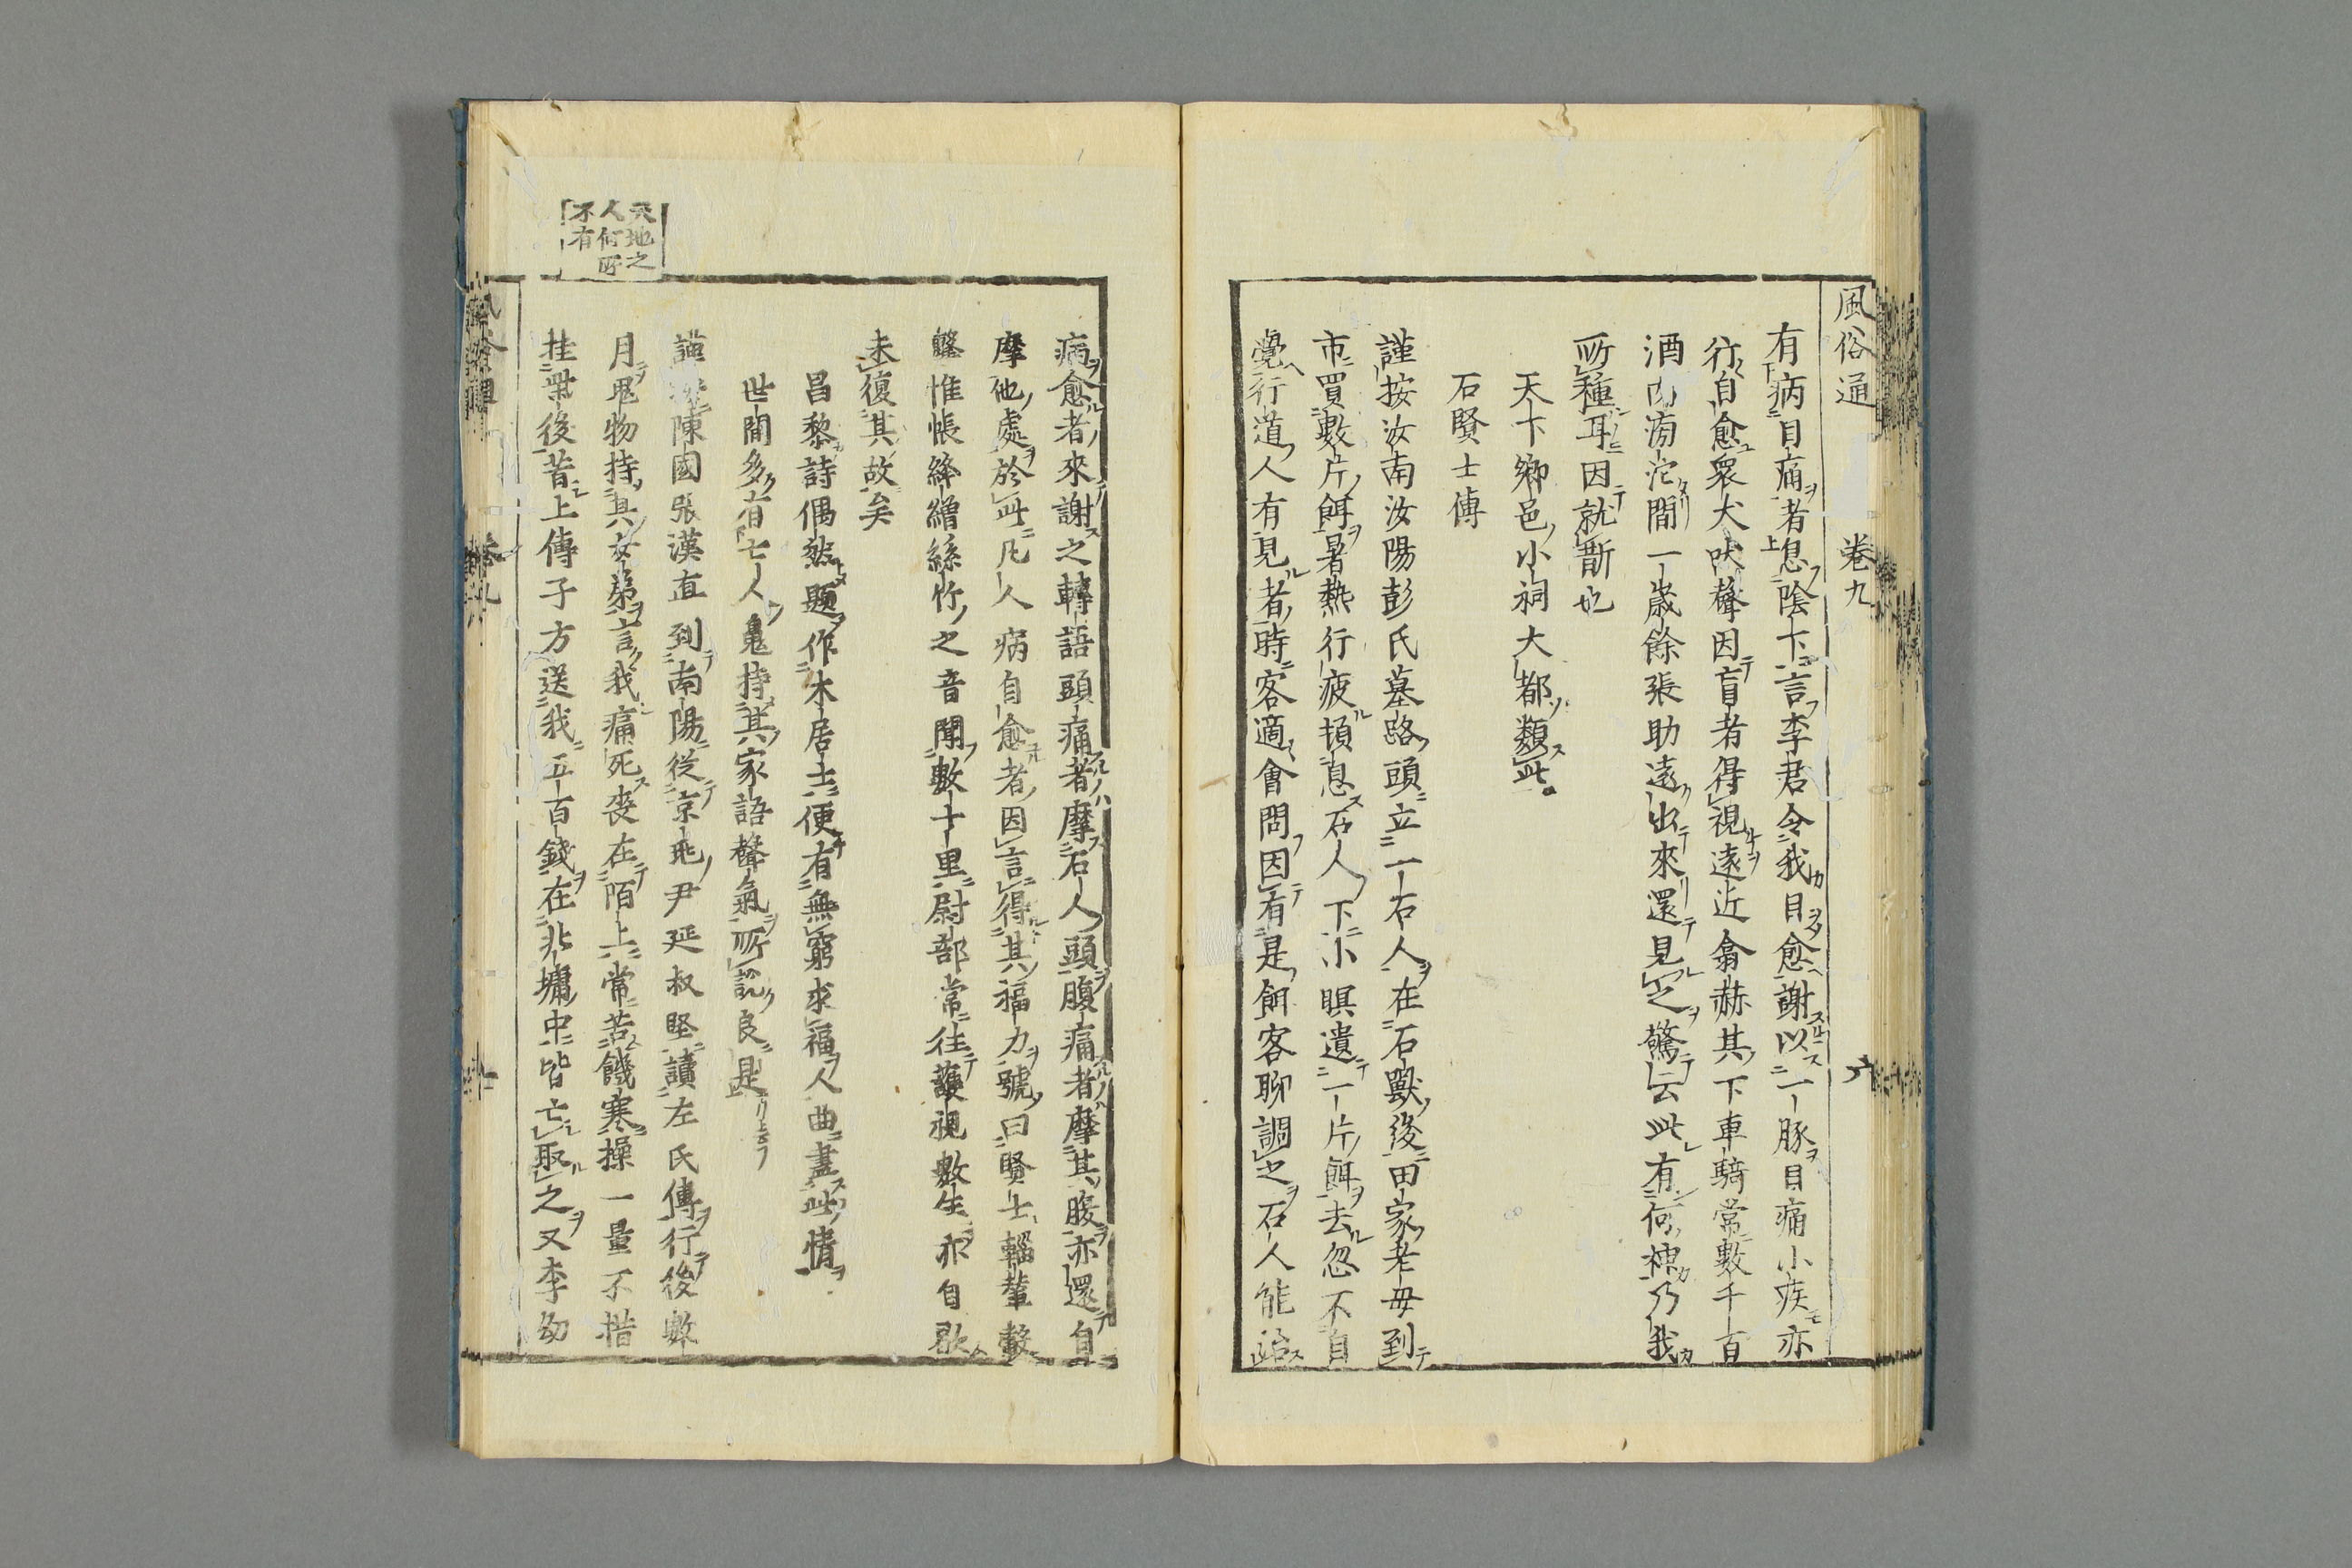 風俗通 卷九 六
有病目痛者息陰下言李君令我目愈謝以一豚目痛小疾亦
行自愈衆犬吠聲因盲者得視遠近翕赫其下車騎常數千百
酒肉滂沱間一歲餘張助遠出來還見之驚云此有何神乃我
所種耳因就斮也
天下鄉邑小祠大都類此
石賢士傳
謹按汝南汝陽彭氏墓路頭立一石人在石獸後田家老母到
市買數片餌暑熱行疲頓息石人下小瞑遺一片餌去忽不自
覺行道人有見者時客適會問因有是餌客聊調之石人能治
病愈者來謝之轉語頭痛者摩石人頭腹痛者摩其腹亦還自
摩他處於此凡人病自愈者因言得其福力號曰賢士輜輂轂
擊惟帳絳繒絲竹之音聞數十里尉部常往護視數年亦自歇
未復其故矣
昌黎詩偶然題作木居士便有無窮求福人曲盡此情
世間多有亡人鬼持其家語聲氣所說良是
謹按陳國張漢直到南陽從京兆尹延叔堅讀左氏傳行後數
月鬼物持其女弟言我痛死喪在陌上常苦饑寒操一量不借
挂屋後昔上傳子方送我五百錢在北墉中皆亡取之又李幼
天地之
人何所
不有